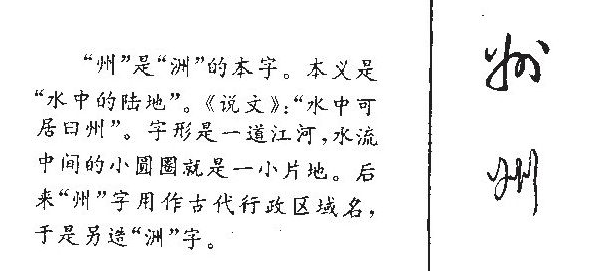 “州”是“洲”的本字。本义是
“水中的陆地”。《说文》:“水中可
居曰州”。字形是一道江河,水流
中间的小圆圈就是一小片地。后
来“州”字用作古代行政区域名,
于是另造“洲”字。
州
州